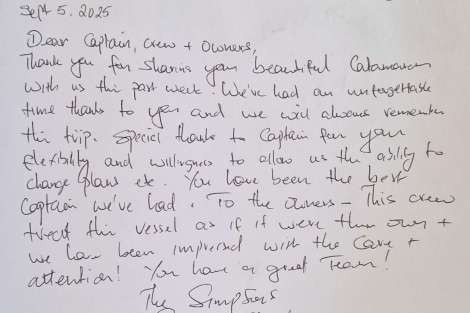 Sept 5, 2025
Dear Captain, crew + Owners,
Thank you for sharing your beautiful Catamaran
with us this past week. We've had an unforgettable
time thanks to you and we will always remember
this trip. Special thanks to Captain for your
flexibility and willingness to allow us the ability to
change plans etc. You have been the best
Captain we've had. To the owners - This crew
treat this vessel as if it were their own +
we have been impressed with the care +
attention! You have a great Team!
The Simpsons